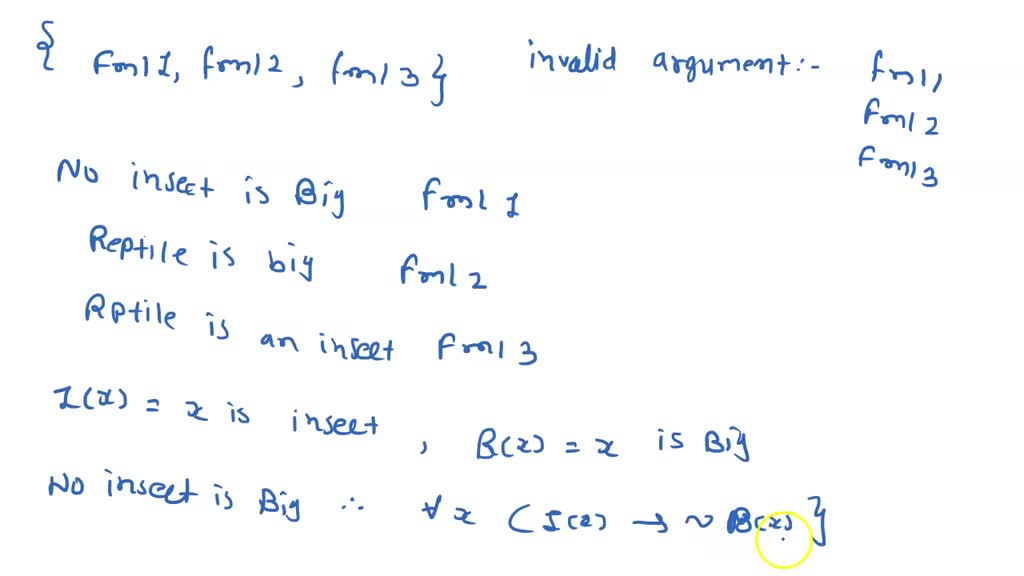 { Fml 1, fml 2, fml 3 } invalid argument:- fml 1,
Fml 2
Fml 3
No insect is Big Fml 1
Reptile is big Fml 2
Rptile is an insect Fml 3
I(x) = x is insect, B(x) = x is Big
No insect is Big ∴ ∀ x ( I(x) → ~ B(x) }